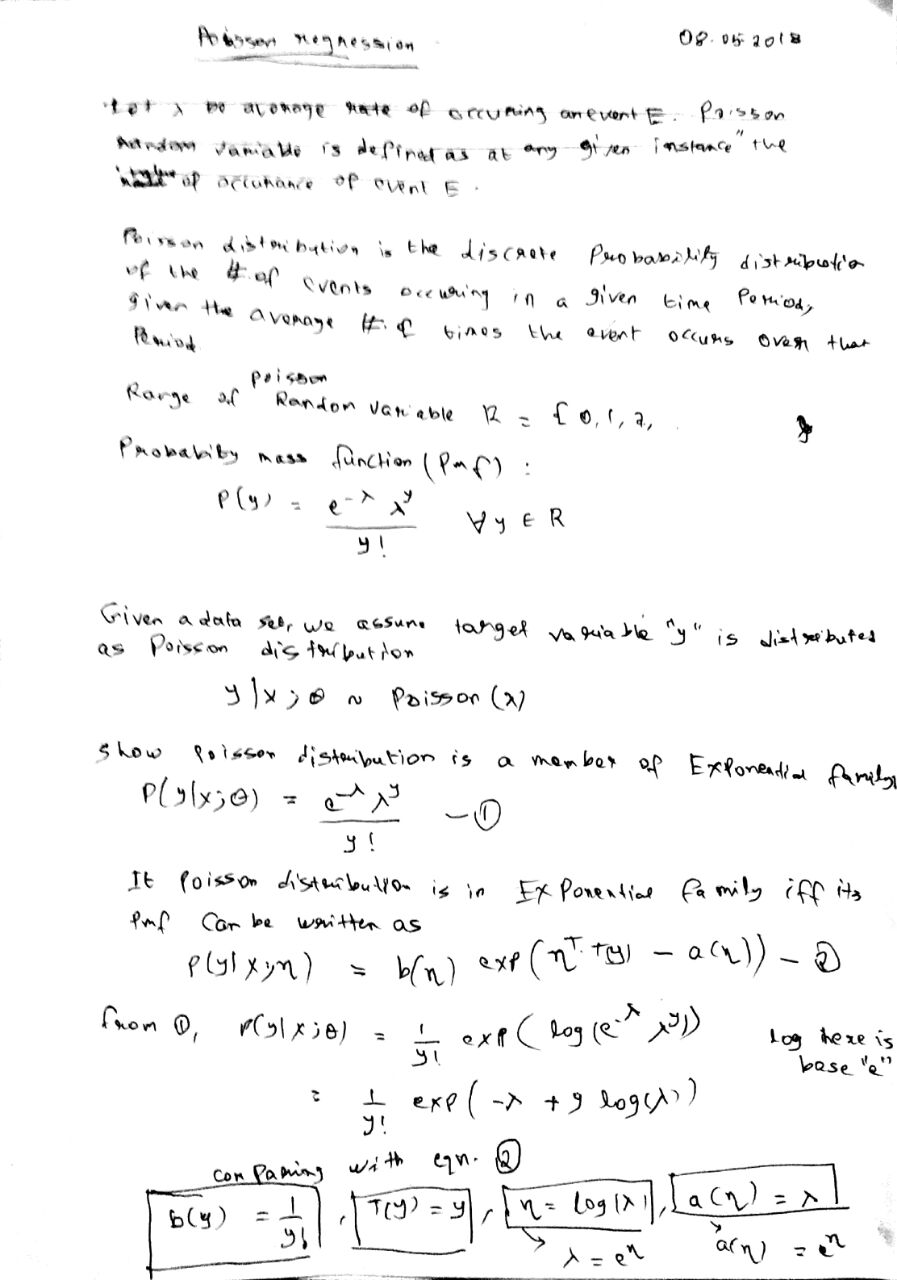 Poisson regression
08.05.2018
Let λ be average rate of occuring an event E. Poisson
Random variable is defined as at any given instance "the
of occurance of event E.
Poisson distribution is the discrete Probabability distribution
of the # of events occuring in a given time Period,
given the average #. of times the event occurs over that
Period
Range of poisson Random variable R = {0, 1, 2, . }
Probability mass function (Pmf) :
P(y) = e^{-λ} λ^y / y! ∀ y ∈ R
Given a data set, we assume target variable "y" is distributed
as Poisson distribution
y|x;θ ~ Poisson(λ)
Show poisson distribution is a member of Exponential family
P(y|x;θ) = e^{-λ} λ^y / y! — ①
It Poisson distribution is in Exponential family iff its
Pmf can be written as
P(y|x;η) = b(η) exp(η^T. T(y) − a(η)) — ②
from ①, P(y|x;θ) = 1/y! exp(log(e^{-λ} λ^y))
log here is
base "e"
= 1/y! exp(-λ + y log(λ))
comparing with eqn. ②
b(y) = 1/y! , T(y) = y , η = log(λ) , a(η) = λ
λ = e^η a(η) = e^η